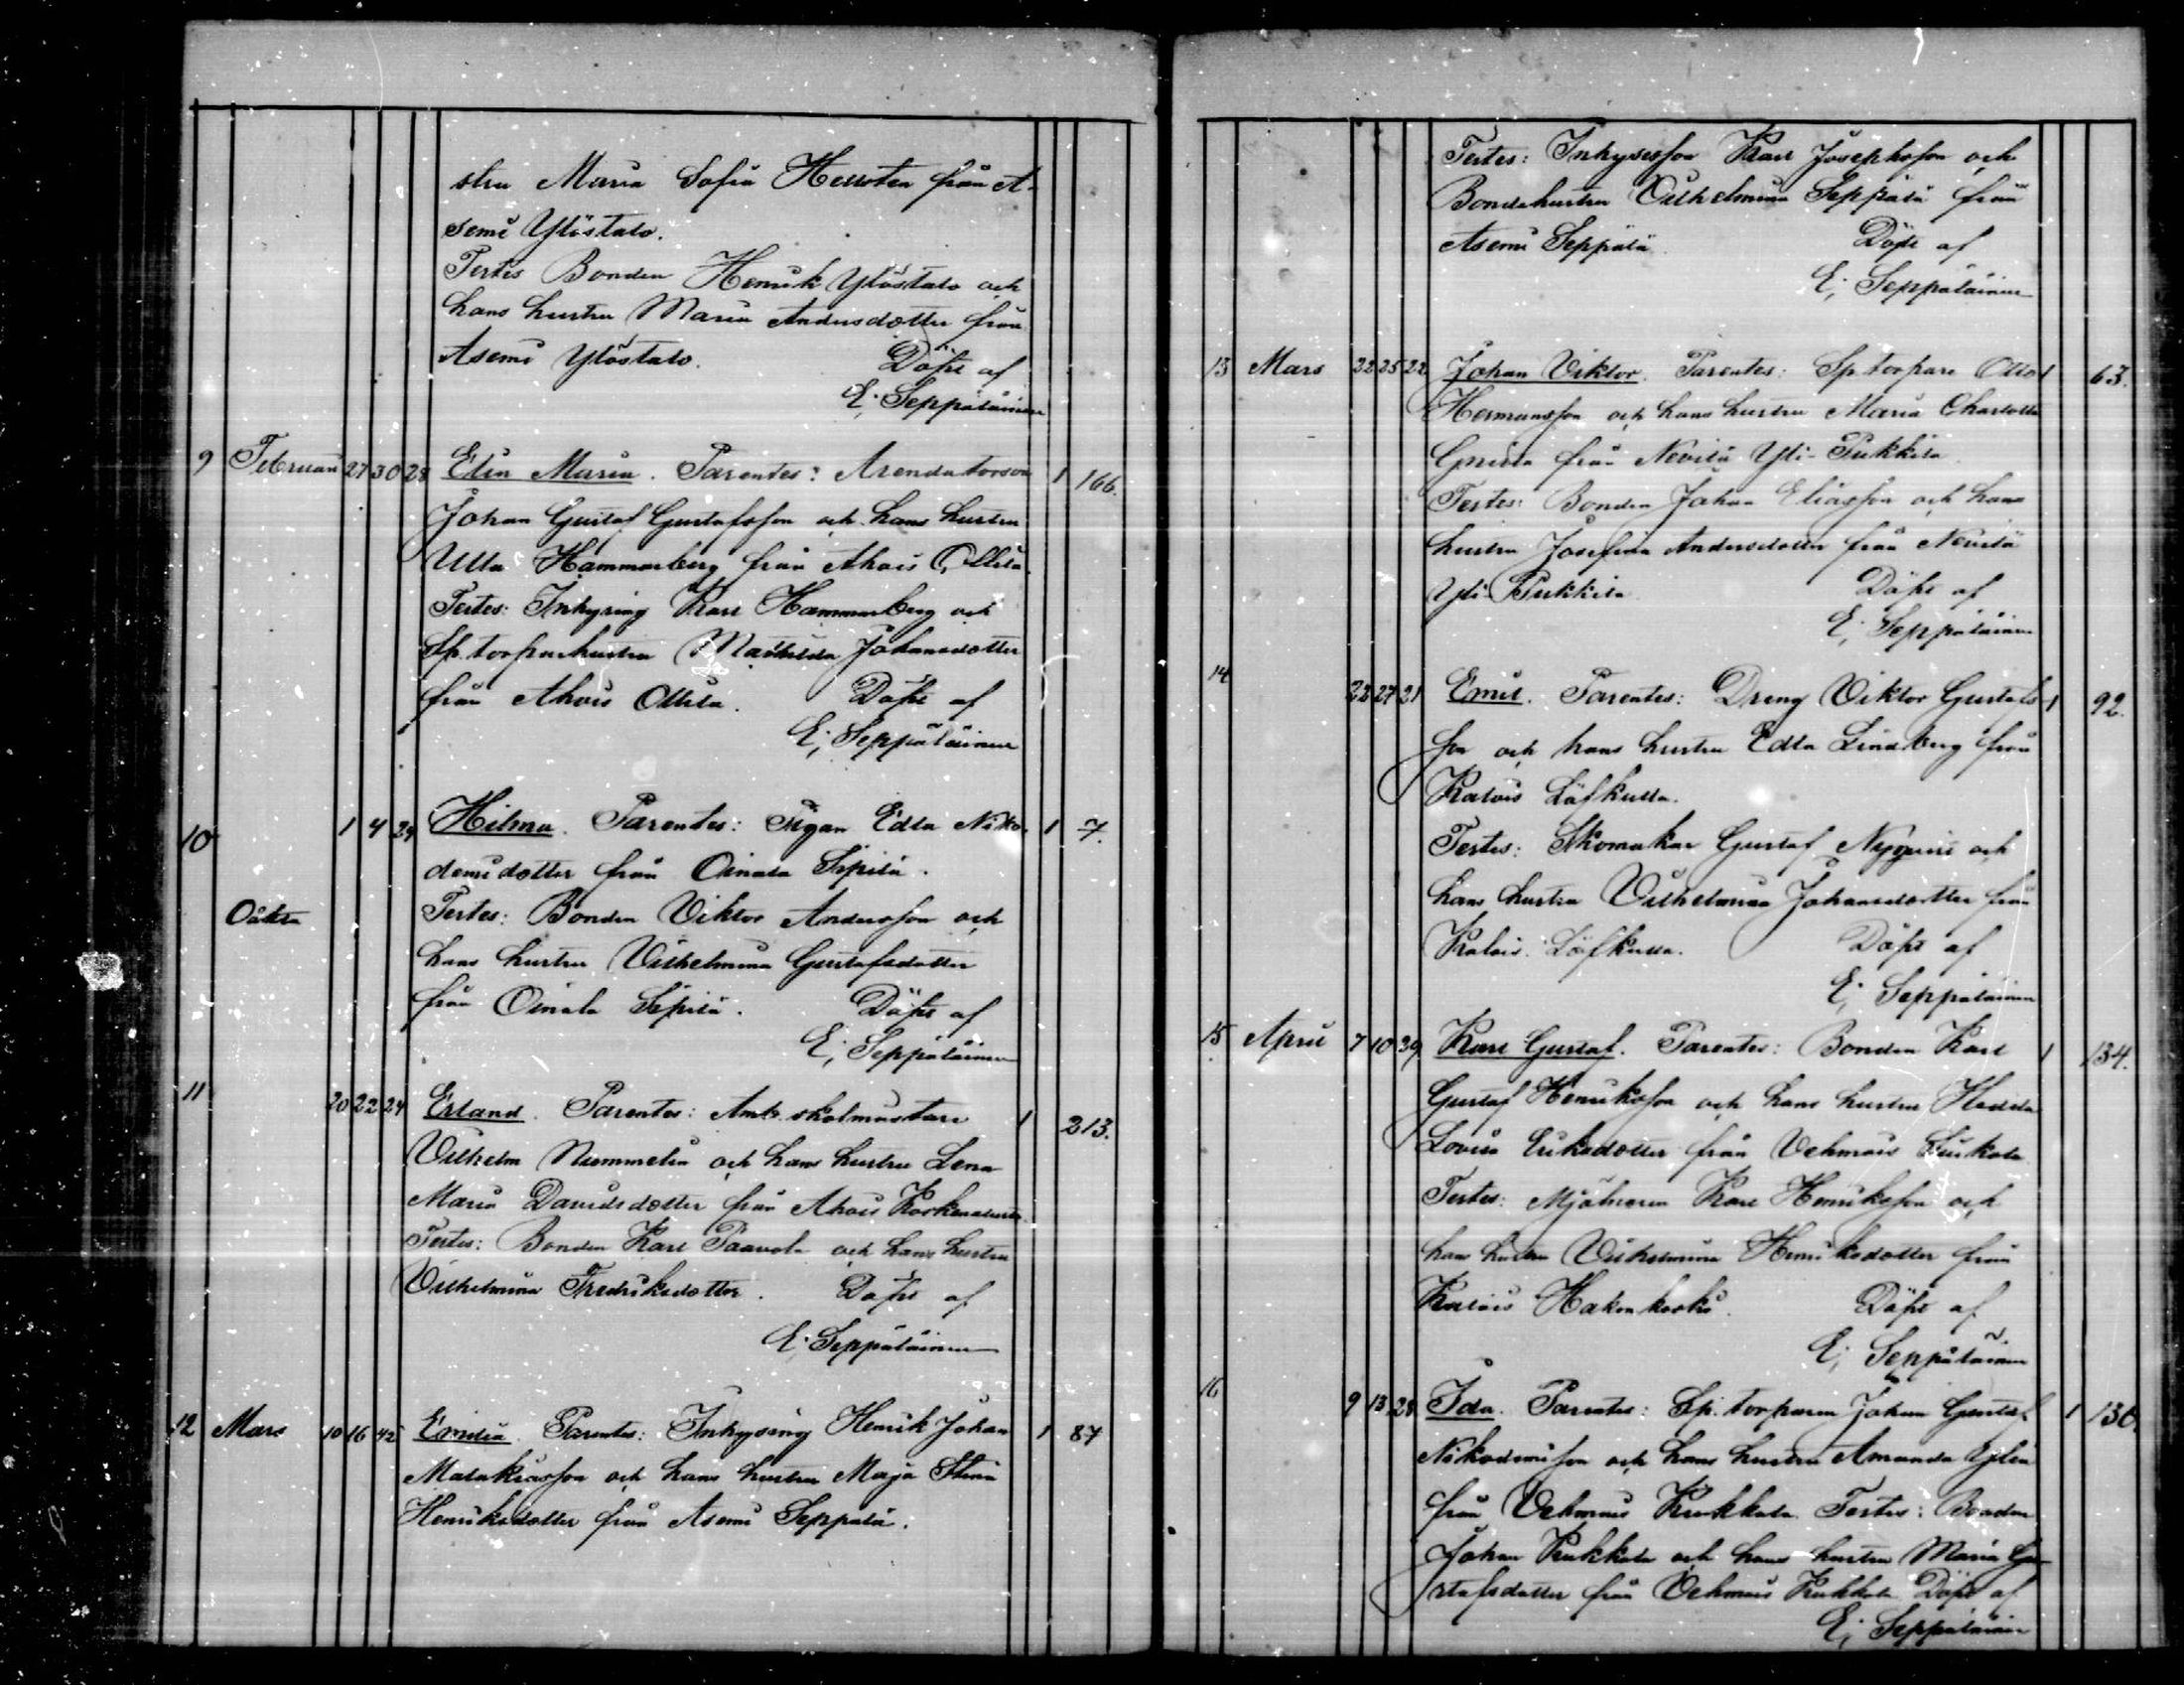 stru Maria Sofia Hellsten från A-
semi Ylöstalo.
Testes Bonden Henrik Ylöstalo och
hans hustru Maria Andersdotter från
Asemi Ylöstalo. Döpt af
E; Seppäläinen
9 Februari 27 30 28 Elin Maria. Parentes: Arendatorson 1 166.
Johan Gustaf Gustafsson och hans hustru
Ulla Hammarberg från Ahois Ollila.
Testes: Inhysing Karl Hammarberg och
Sp. torparehustru Mathilda Johansdotter
från Ahois Ollila. Döpt af
E; Seppäläinen
10 1 4 29 Hilma. Parentes: Pigan Edla Niko- 1 7.
demidotter från Oinala Sipilä.
Oäkta Testes: Bonden Viktor Andersson och
hans hustru Vilhelmina Gustafsdotter
från Oinala Sipilä. Döpt af
E; Seppäläinen
11 20 22 24 Erland. Parentes: Amb. skolmästare 1 213.
Vilhelm Nummelin och hans hustru Lena
Maria Davidsdotter från Ahois
Testes: Bonden Karl Paavola och hans hustru
Vilhelmina Fredriksdotter. Döpt af
E; Seppäläinen
12 Mars 10 16 42 Emilia. Parentes: Inhysing Henrik Johan 1 87
Malakiasson och hans hustru Maja Stina
Henriksdotter från Asemi Seppälä.
Testes: Inhyseson Karl Josephsson och
Bondehustru Vilhelmina Seppälä från
Asemi Seppälä. Döpt af
E; Seppäläinen
13 Mars 22 25 22 Johan Viktor. Parentes: Sp. torpare Otto 1 63.
Hermansson och hans hustru Maria Charlotta
från Nevilä Yli-Pukkila.
Testes: Bonden Johan Eliasson och hans
hustru Josefina Andersdotter från Nevilä
Yli-Pukkila Döpt af
E; Seppäläinen
14 22 27 21 Emil. Parentes: Dreng Viktor Gustafs- 1 92.
son och hans hustru Edla Lindberg från
Kalois Löfkulla.
Testes: Skomakar Gustaf Nygvist och
hans hustru Vilhelmina Johansdotter från
Kalois Löfkulla. Döpt af
E; Seppäläinen
15 April 7 10 39 Karl Gustaf. Parentes: Bonden Karl 1 134.
Gustaf Henriksson och hans hustru Hedda
Lovisa Eriksdotter från Vehmais Liukola
Testes: Mjölnaren Karl Henriksson och
hans hustru Vilhelmina Henriksdotter från
Kalois Hakonkoski. Döpt af
E; Seppäläinen
16 9 13 28 Ida. Parentes: Sp. torparen Johan Gustaf 1 130.
Nikodemisson och hans hustru Amanda Ylen
från Vehmais Kukkola. Testes: Bonden
Johan Kukkola och hans hustru Maria Gu-
stafsdotter från Vehmais Kukkola. Döpt af
E; Seppäläinen